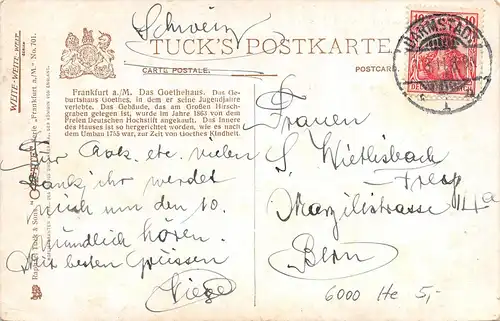 Schweiz
TUCK'S POSTKARTE
CARTE POSTALE.
POSTCARD
Frankfurt a./M. Das Goethehaus. Das Ge-
burtshaus Goethes, in dem er seine Jugendjahre
verlebte. Das Gebäude, das am Großen Hirsch-
graben gelegen ist, wurde im Jahre 1863 von dem
Freien Deutschen Hochstift angekauft. Das Innere
des Hauses ist so hergerichtet worden, wie es nach
dem Umbau 1755 war, zur Zeit von Goethes Kindheit.
Für Aak. etc. vielen
Dank, ihr werdet
mich um den 10.
mündlich hören.
Mit besten Grüssen
10
10
DARMSTADT
Frauen
S. Wietlisbach
Marzilistrasse 14a
Bern
6000 He 5,-
WEITE-WEITE-WELT
Serie „Frankfurt a./M." No. 701.
Raphael Tuck & Sons